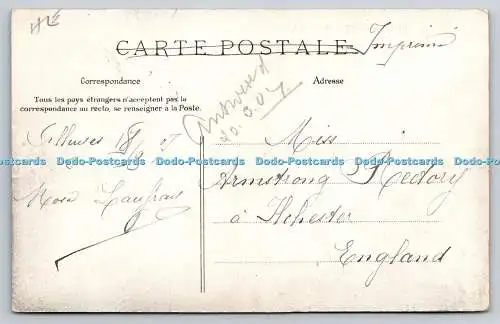 CARTE POSTALE
Imprimé
Correspondance
Adresse
Tous les pays étrangers n'acceptent pas la
correspondance au recto, se renseigner à la Poste.
Answered
20.9.07
18/9 07
Rosa
Miss
Armstrong Rectory
à Ilchester
England
Dodo-Postcards Dodo-Postcards Dodo-Postcards Dodo-Postcards Dodo-Postcards Dodo-Postcards